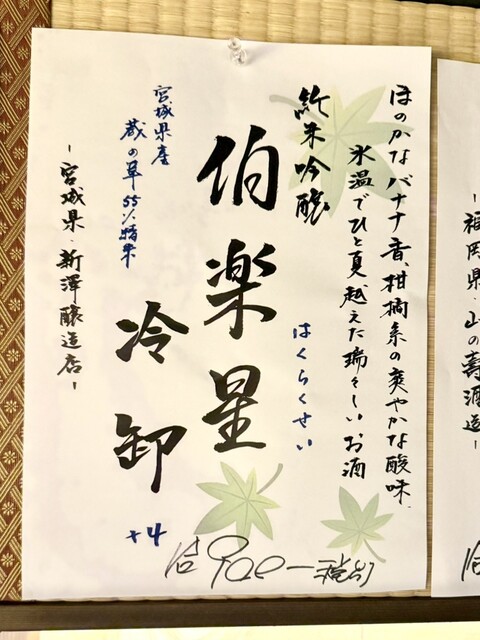 ほのかなバナナ香、柑橘系の爽やかな酸味、
氷温でひと夏越えた瑞々しいお酒
純米吟醸
はくらくせい
伯楽星
冷卸
+4
宮城県産
蔵の華55%精米
-宮城県・新澤醸造店-
一合900-税別
-福岡県・山の壽酒造-